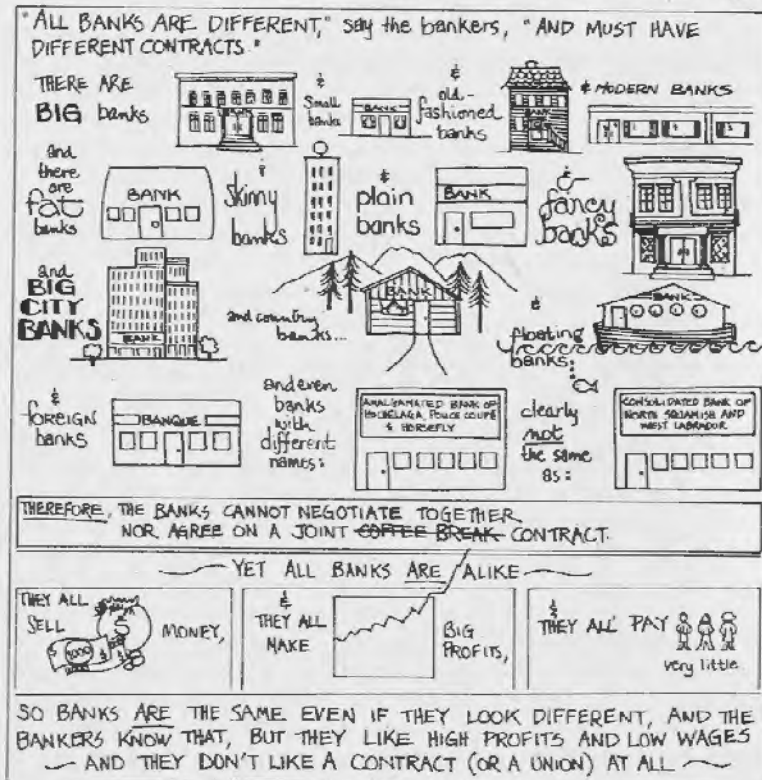 "ALL BANKS ARE DIFFERENT," say the bankers, "AND MUST HAVE
DIFFERENT CONTRACTS."
THERE ARE
BIG banks
&
Small
banks
BANK
&
old-
fashioned
banks
BANK
& MODERN BANKS
and
there
are
fat
banks
BANK
&
skinny
banks
&
plain
banks
BANK
&
fancy
banks
and
BIG
CITY
BANKS
BANK
and country
banks...
BANK
&
floating
banks:
BANK
&
foreign
banks
BANQUE
and even
banks
with
different
names:
AMALGAMATED BANK OF
HOCHELAGA, POUCE COUPÉ
& HORSEFLY
clearly
not
the same
as:
CONSOLIDATED BANK OF
NORTH SQUAMISH AND
WEST LABRADOR
THEREFORE, THE BANKS CANNOT NEGOTIATE TOGETHER
NOR AGREE ON A JOINT COFFEE BREAK CONTRACT.
YET ALL BANKS ARE ALIKE
THEY ALL
SELL
$ 1000 $
MONEY,
&
THEY ALL
MAKE
BIG
PROFITS,
&
THEY ALL PAY
very little.
SO BANKS ARE THE SAME EVEN IF THEY LOOK DIFFERENT, AND THE
BANKERS KNOW THAT, BUT THEY LIKE HIGH PROFITS AND LOW WAGES
AND THEY DON'T LIKE A CONTRACT (OR A UNION) AT ALL